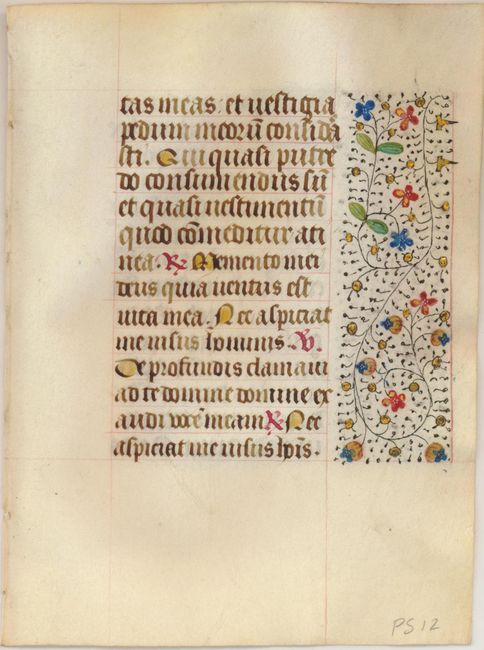 tas meas: et uestigia
pedum meorū considā
sti. Qui quasi putre
do consumendus sū
et quasi uestimentū
quod cōmeditur a ti
nea. ℟ Memento mei
deus quia uentus est
uita mea. Nec aspiciat
me uisus hominis. ℣.
De profundis clamaui
ad te domine domine ex
audi vocē meam ℟ Nec
aspiciat me uisus hoīs.
PS 12